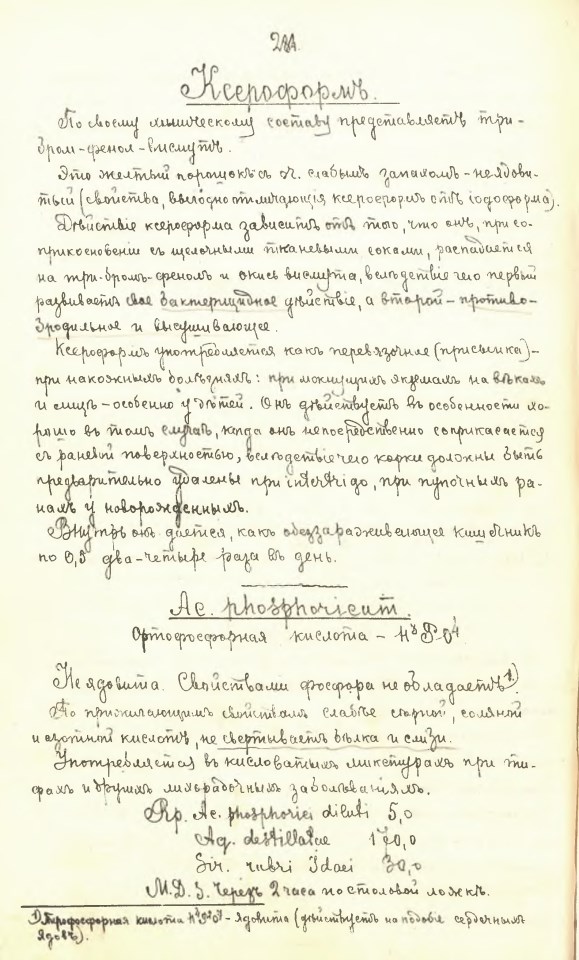 281.
Ксероформъ.
По своему химическому составу представляетъ три-
бром-фенол-висмутъ.
Это желтый порошокъ съ оч. слабымъ запахомъ - неядови-
тый (свойства, выгодно отличающія ксероформъ отъ іодоформа).
Дѣйствіе ксероформа зависитъ отъ того, что онъ, при со-
прикосновеніи съ щелочными тканевыми соками, распадается
на три-бромъ-фенолъ и окись висмута, вслѣдствіе чего первый
развиваетъ свое бактерицидное дѣйствіе, а второй - противо-
бродильное и высушивающее.
Ксероформъ употребляется какъ перевязочное (присыпка) -
при накожныхъ болѣзняхъ: при мокнущихъ экземахъ на вѣкахъ
и лицѣ - особенно у дѣтей. Онъ дѣйствуетъ въ особенности хо-
рошо въ томъ случаѣ, когда онъ непосредственно соприкасается
съ раневой поверхностью, вслѣдствіе чего корки должны быть
предварительно удалены при intertrigo, при пупочныхъ ра-
нахъ у новорожденныхъ.
Внутрь онъ дается, какъ обеззараживающее кишечникъ
по 0,5 два-четыре раза въ день.
Ac. phosphoricum.
Ортофосфорная кислота - H³PO⁴
Не ядовита. Свойствами фосфора не обладаетъ 1)
По прижигающимъ свойствамъ слабѣе сѣрной, соляной
и азотной кислотъ, не свертываетъ бѣлка и слизи.
Употребляется въ кисловатыхъ микстурахъ при ти-
фахъ и другихъ лихорадочныхъ заболѣваніяхъ.
Rp. Ac. phosphorici diluti 5,0
Aq. destillatae 170,0
Sir. rubri Idaei 30,0
M.D.S. Черезъ 2 часа по столовой ложкѣ.
1) Пирофосфорная кислота H⁴P²O⁷ - ядовита (дѣйствуетъ на подобіе сердечныхъ
ядовъ).